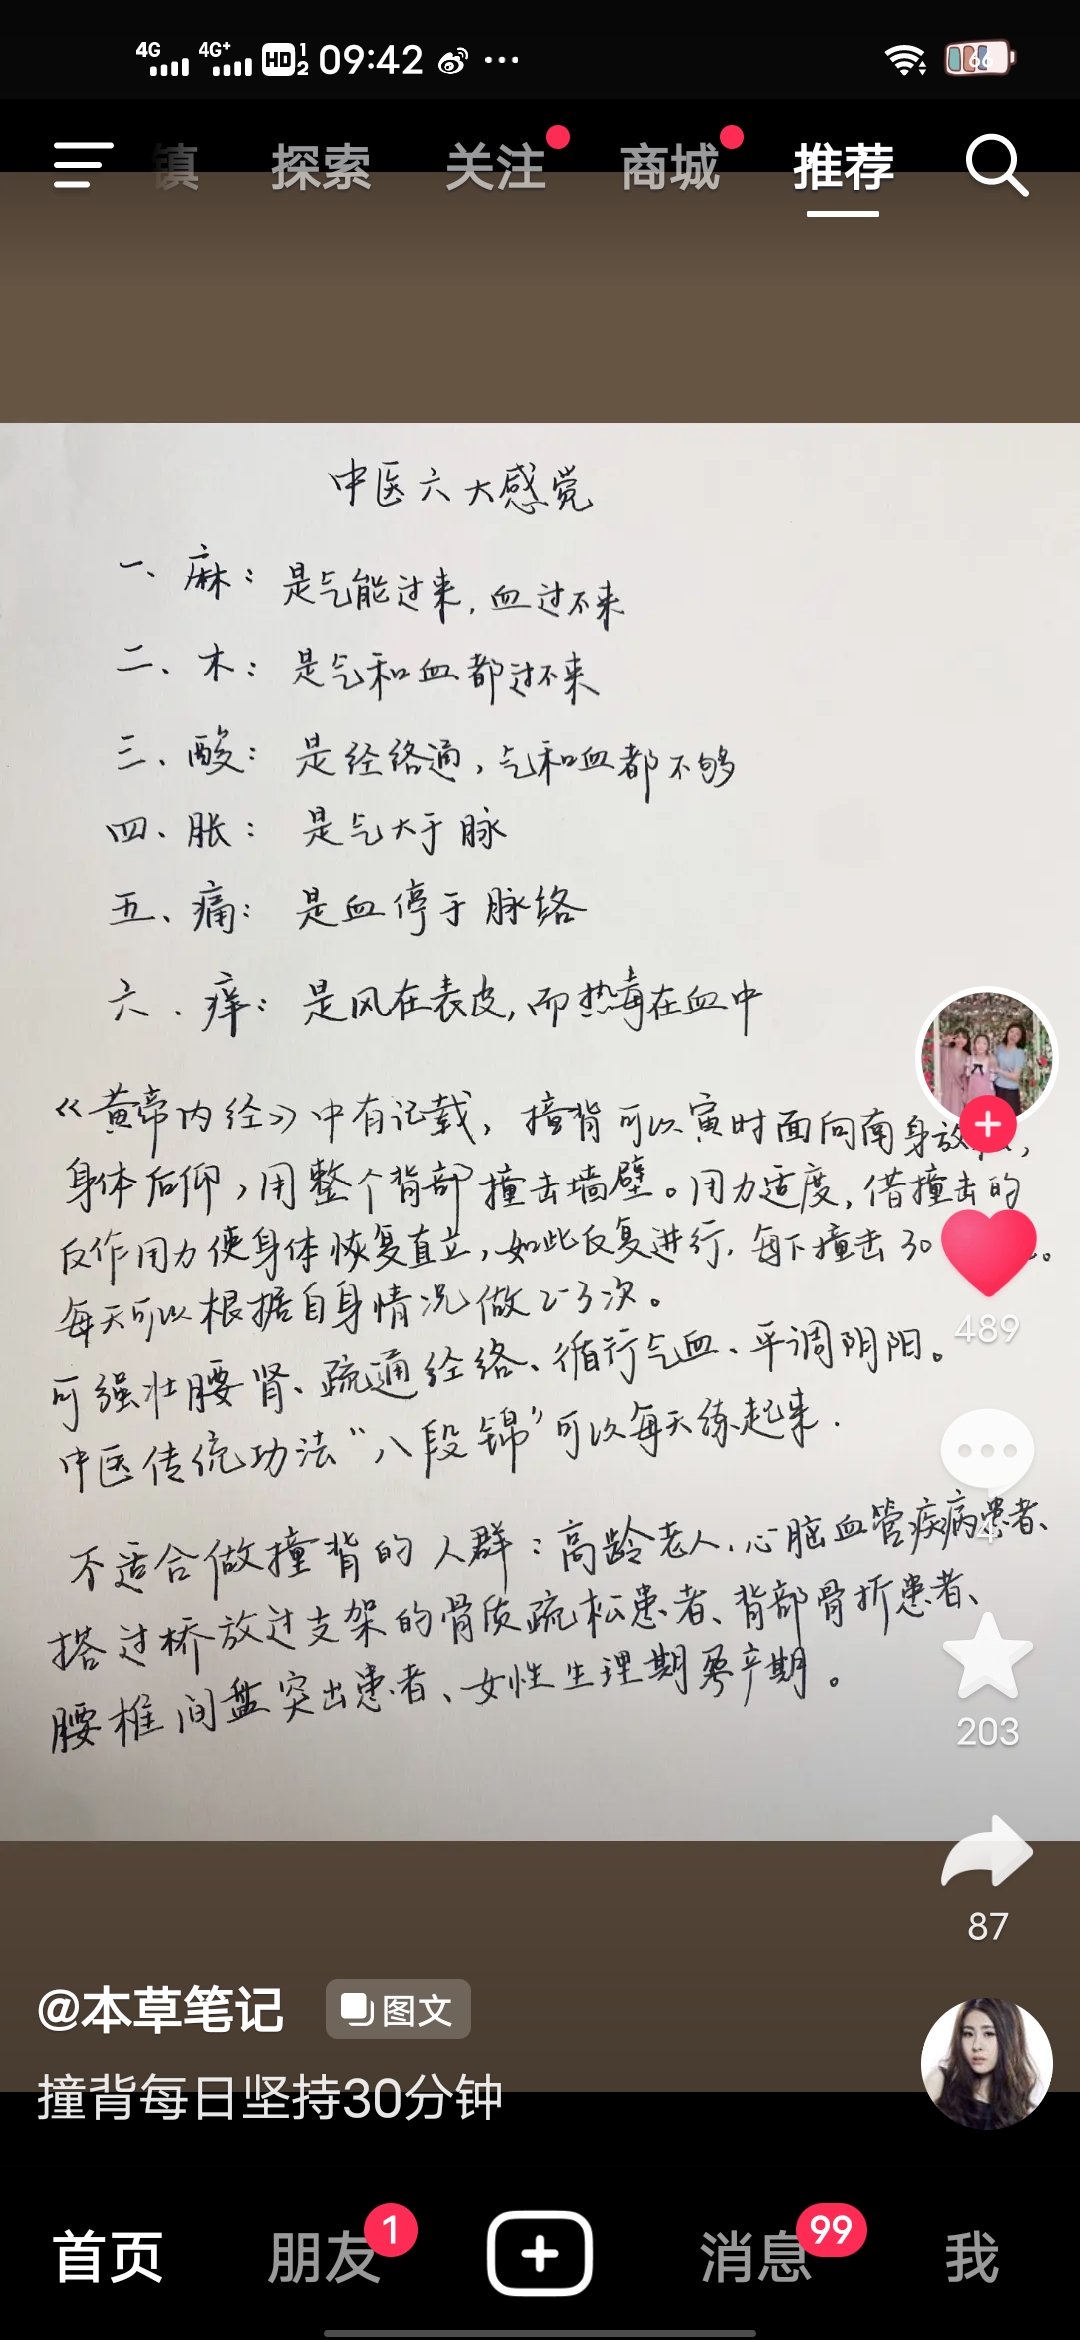 4G 4G+ HD 1 2 09:42 66
镇 探索 关注 商城 推荐
中医六大感觉
一、麻：是气能过来，血过不来
二、木：是气和血都过不来
三、酸：是经络通，气和血都不够
四、胀：是气大于脉
五、痛：是血停于脉络
六、痒：是风在表皮，而热毒在血中
《黄帝内经》中有记载，撞背可以寅时面向南身放，
身体后仰，用整个背部撞击墙壁。用力适度，借撞击的
反作用力使身体恢复直立，如此反复进行，每下撞击30。
每天可以根据自身情况做2-3次。
可强壮腰肾、疏通经络、循行气血、平调阴阳。
中医传统功法“八段锦”可以每天练起来．
不适合做撞背的人群：高龄老人、心脑血管疾病患者、
搭过桥放过支架的骨质疏松患者、背部骨折患者、
腰椎间盘突出患者、女性生理期孕产期。
489
4
203
87
@本草笔记 图文
撞背每日坚持30分钟
首页 朋友 1 消息 99 我